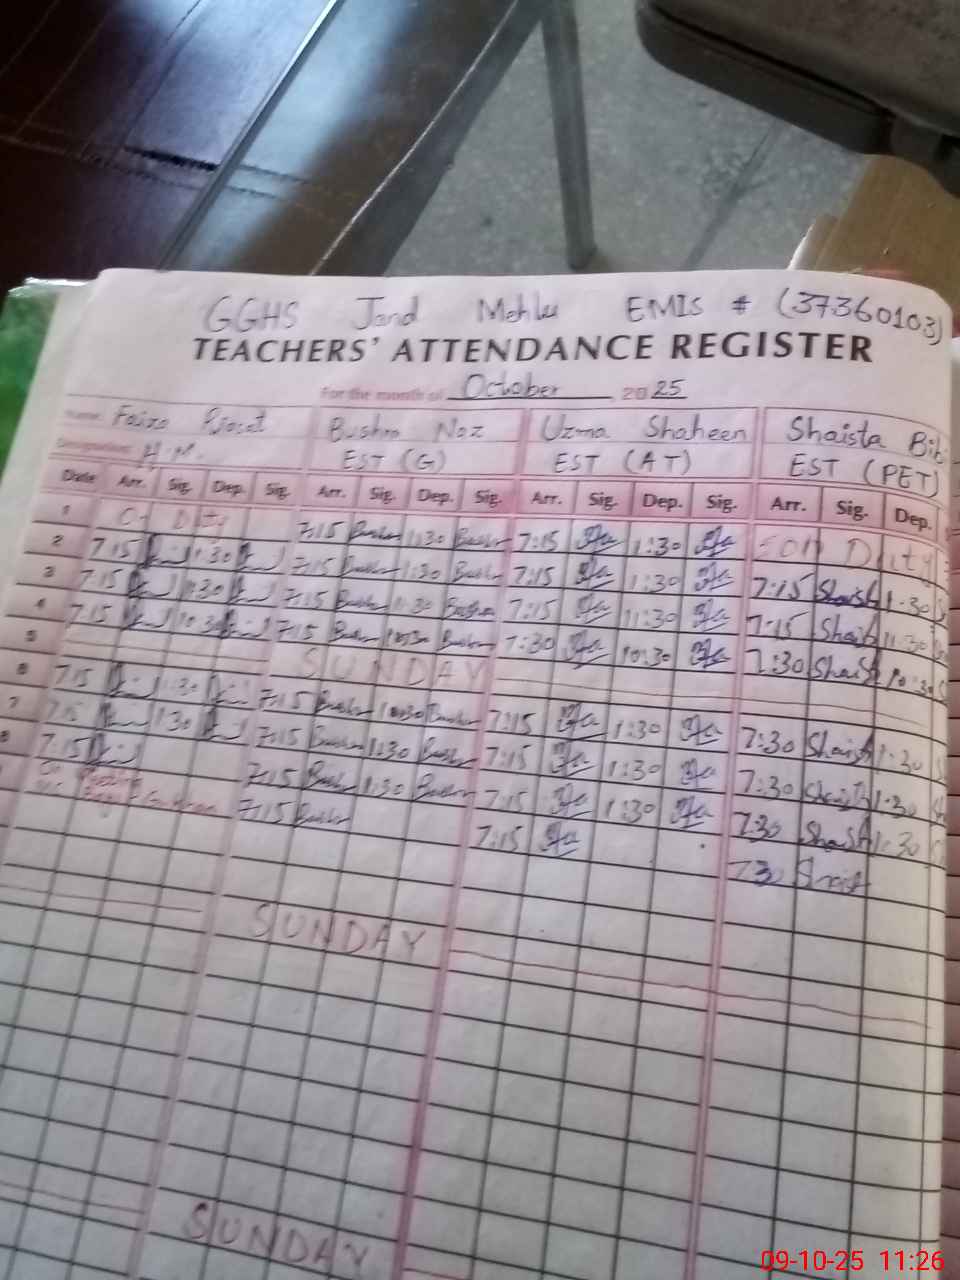 GGHS Jand Mehlu EMIS # (37360103)
TEACHERS' ATTENDANCE REGISTER
For the month of October 2025
Name: Faiza Riasat Bushra Naz Uzma Shaheen Shaista Bib
Designation: H.M. EST (G) EST (AT) EST (PET)
Date Arr. Sig. Dep. Sig. Arr. Sig. Dep. Sig. Arr. Sig. Dep. Sig. Arr. Sig. Dep.
1 On Duty 7:15 Bushra 1:30 Bushra 7:15 1:30 on Duty
2 7:15 1:30 7:15 Bushra 1:30 Bushra 7:15 1:30 7:15 Shaist 1:30
3 7:15 11:30 7:15 Bushra 11:30 Bushra 7:15 11:30 7:15 Shaist 11:30
4 7:15 10:30 7:15 Bushra 10:30 Bushra 7:30 10:30 7:30 Shaist 10:30
5 SUNDAY
6 7:15 1:30 7:15 Bushra Bushra 7:15 1:30 7:30 Shaist 1:30
7 7:15 1:30 7:15 Bushra 1:30 Bushra 7:15 1:30 7:30 Shaist 1:30
8 7:15 7:15 Bush 1:30 Bushra 7:15 1:30 7:30 Shaist 1:30
7:15 Bushr 7:15 7:30 Shaist
SUNDAY
SUNDAY
09-10-25 11:26